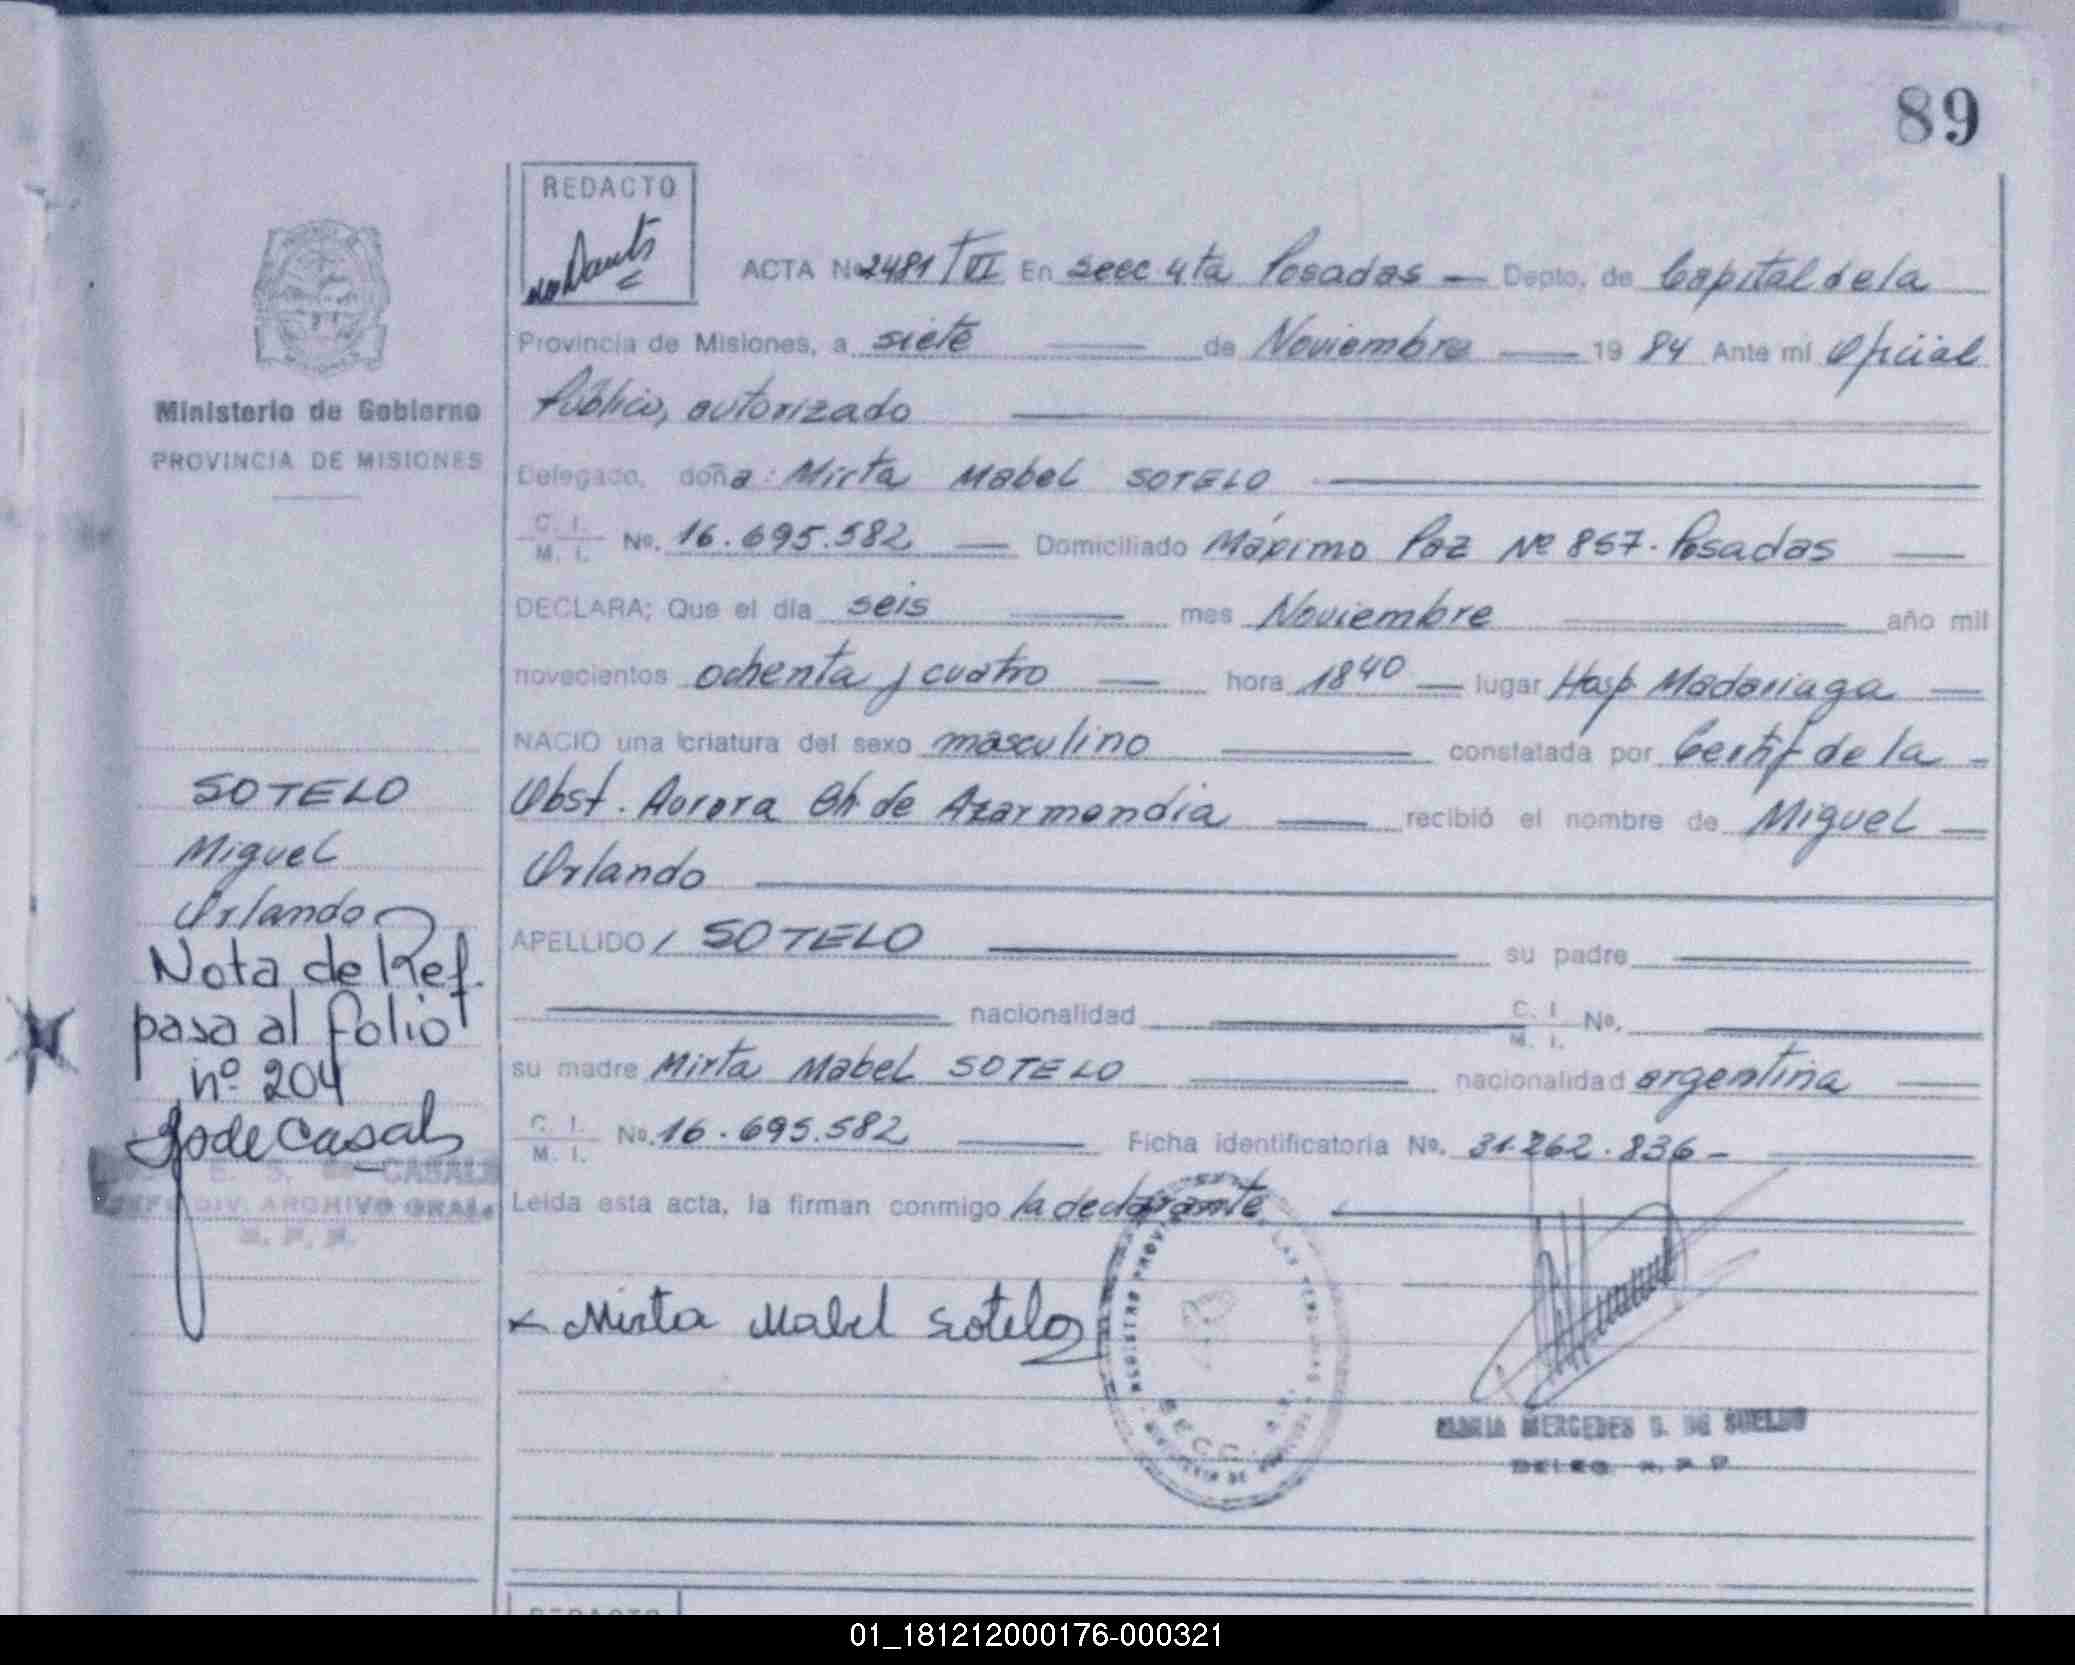 89
REDACTO
ACTA Nº 2481/VI En Secc 4ta Posadas — Depto. de Capital de la
Provincia de Misiones, a siete — de Noviembre — 19 84 Ante mi Oficial
Público, autorizado
Delegado, doña: Mirta Mabel SOTELO
C. I. / M. I. No. 16.695.582 — Domiciliado Máximo Paz Nº 857. Posadas —
DECLARA; Que el día seis — mes Noviembre — año mil
novecientos ochenta y cuatro — hora 18 40 — lugar Hosp. Madariaga —
NACIO una criatura del sexo masculino — constatada por Certif de la -
Obst. Aurora Ch. de Azarmendia — recibió el nombre de Miguel —
Orlando
APELLIDO / SOTELO — su padre —
— nacionalidad — C. I. / M. I. No. —
su madre Mirta Mabel SOTELO — nacionalidad argentina —
C. I. / M. I. No. 16.695.582 — Ficha identificatoria No. 31.262.836 -
Leida esta acta, la firman conmigo la declarante —
Mirta Mabel Sotelo
MARIA MERCEDES G. DE SUELDO
DELEG. R. P. P.
SECC.
Ministerio de Gobierno
PROVINCIA DE MISIONES
SOTELO
Miguel
Orlando
Nota de Ref.
pasa al folio
nº 204
E. S. de CASALS
JEFE DIV. ARCHIVO GRAL.
R. P. P.
REDACTO
01_181212000176-000321